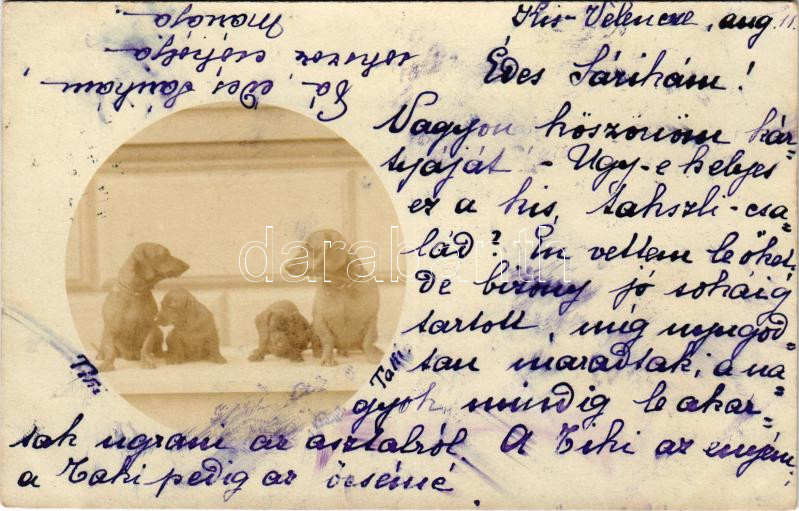 Kis-Velencze, aug. 11.
Édes Sárikám!
Nagyon köszönöm kár-
tyáját - Ugy-e helyes
ez a kis, takszli-csa-
lád? Én vettem le őket
De bizony jó sokáig
tartott, míg nyugod-
tan maradtak, a na-
gyok mindig le akar-
tak ugrani az asztalról. A Tiki az enyém,
a Taki pedig az öcsémé.
Tiki
Taki
Pá, édes Sárikám,
sokszor csókolja
darabanth